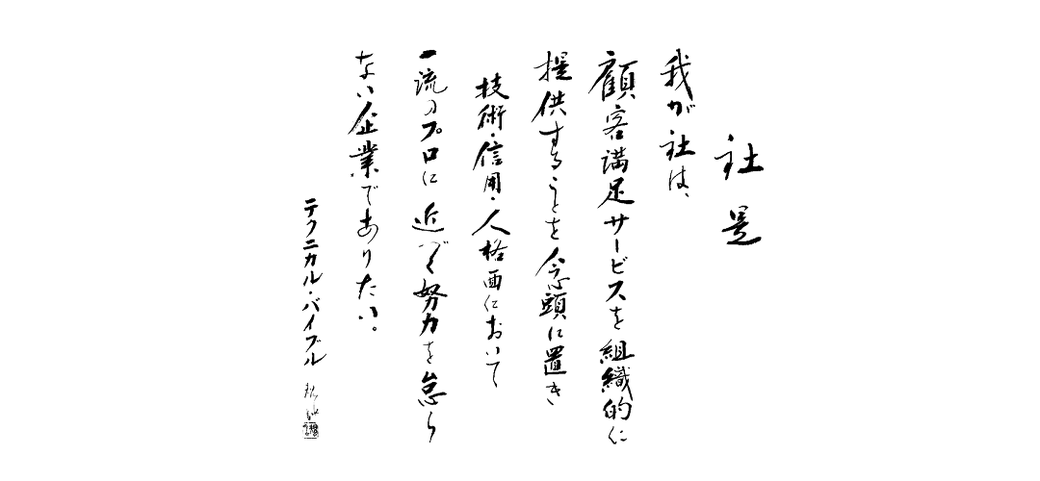 社是
我が社は、
顧客満足サービスを組織的に
提供することを念頭に置き
技術・信用・人格面において
一流のプロに近づく努力を怠ら
ない企業でありたい。
テクニカル・バイブル